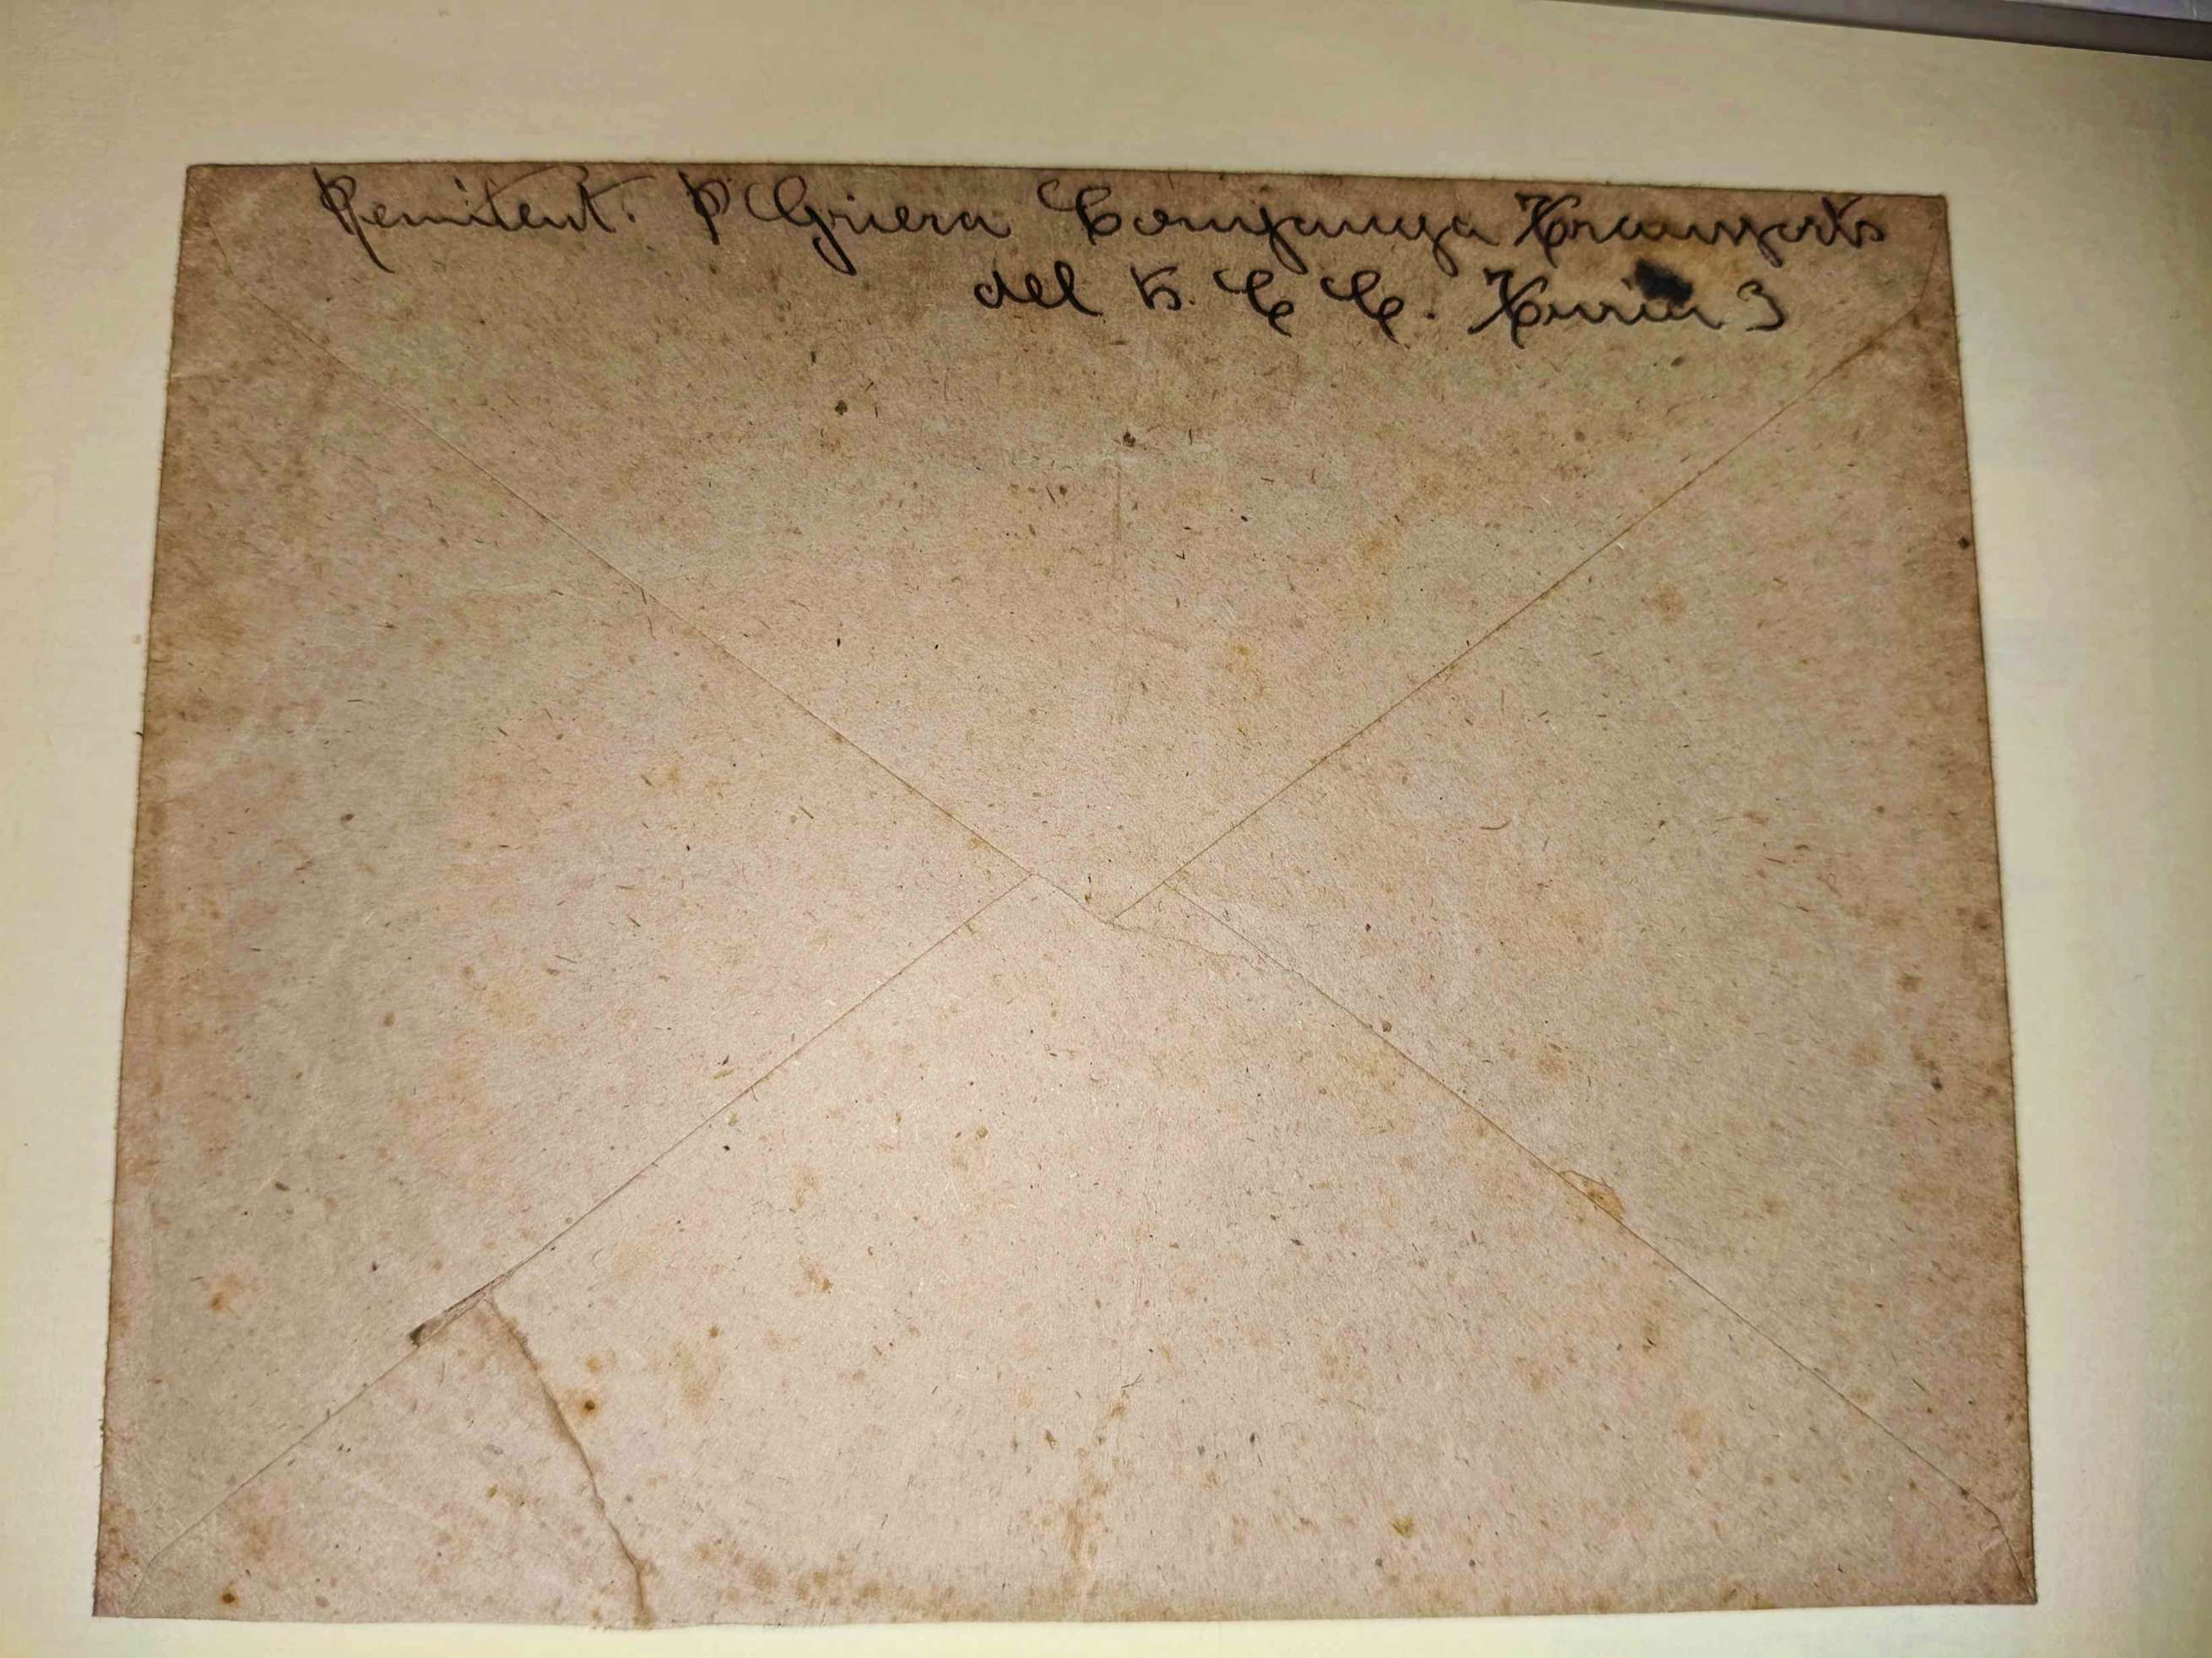 Remitent. P Griera Companya Transports
del B. C C. Turia 3